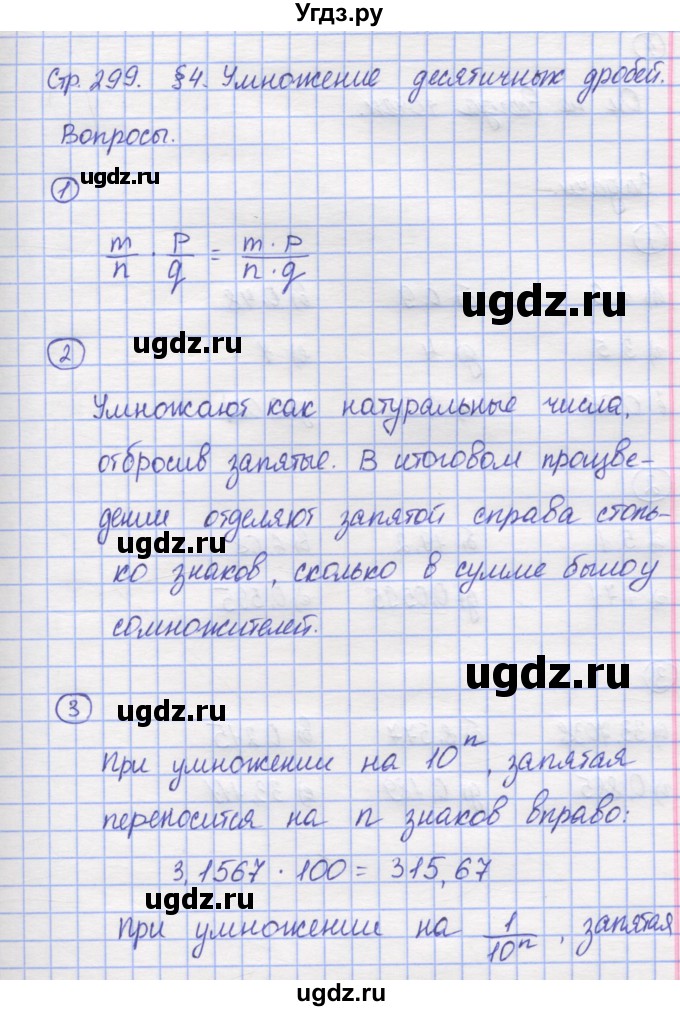 Угдз.ру
Стр. 299. §4. Умножение десятичных дробей.
Вопросы.
ugdz.ru
1
m/n · p/q = m · p / n · q
ugdz.ru
2 ugdz.ru
Умножают как натуральные числа,
отбросив запятые. В итоговом произве-
дении отделяют запятой справа столь-
ugdz.ru
ко знаков, сколько в сумме было у
сомножителей.
ugdz.ru
3 ugdz.ru
При умножении на 10ⁿ, запятая
переносится на n знаков вправо:
3,1567 · 100 = 315,67
ugdz.ru
При умножении на 1/10ⁿ, запятая
ugdz.ru